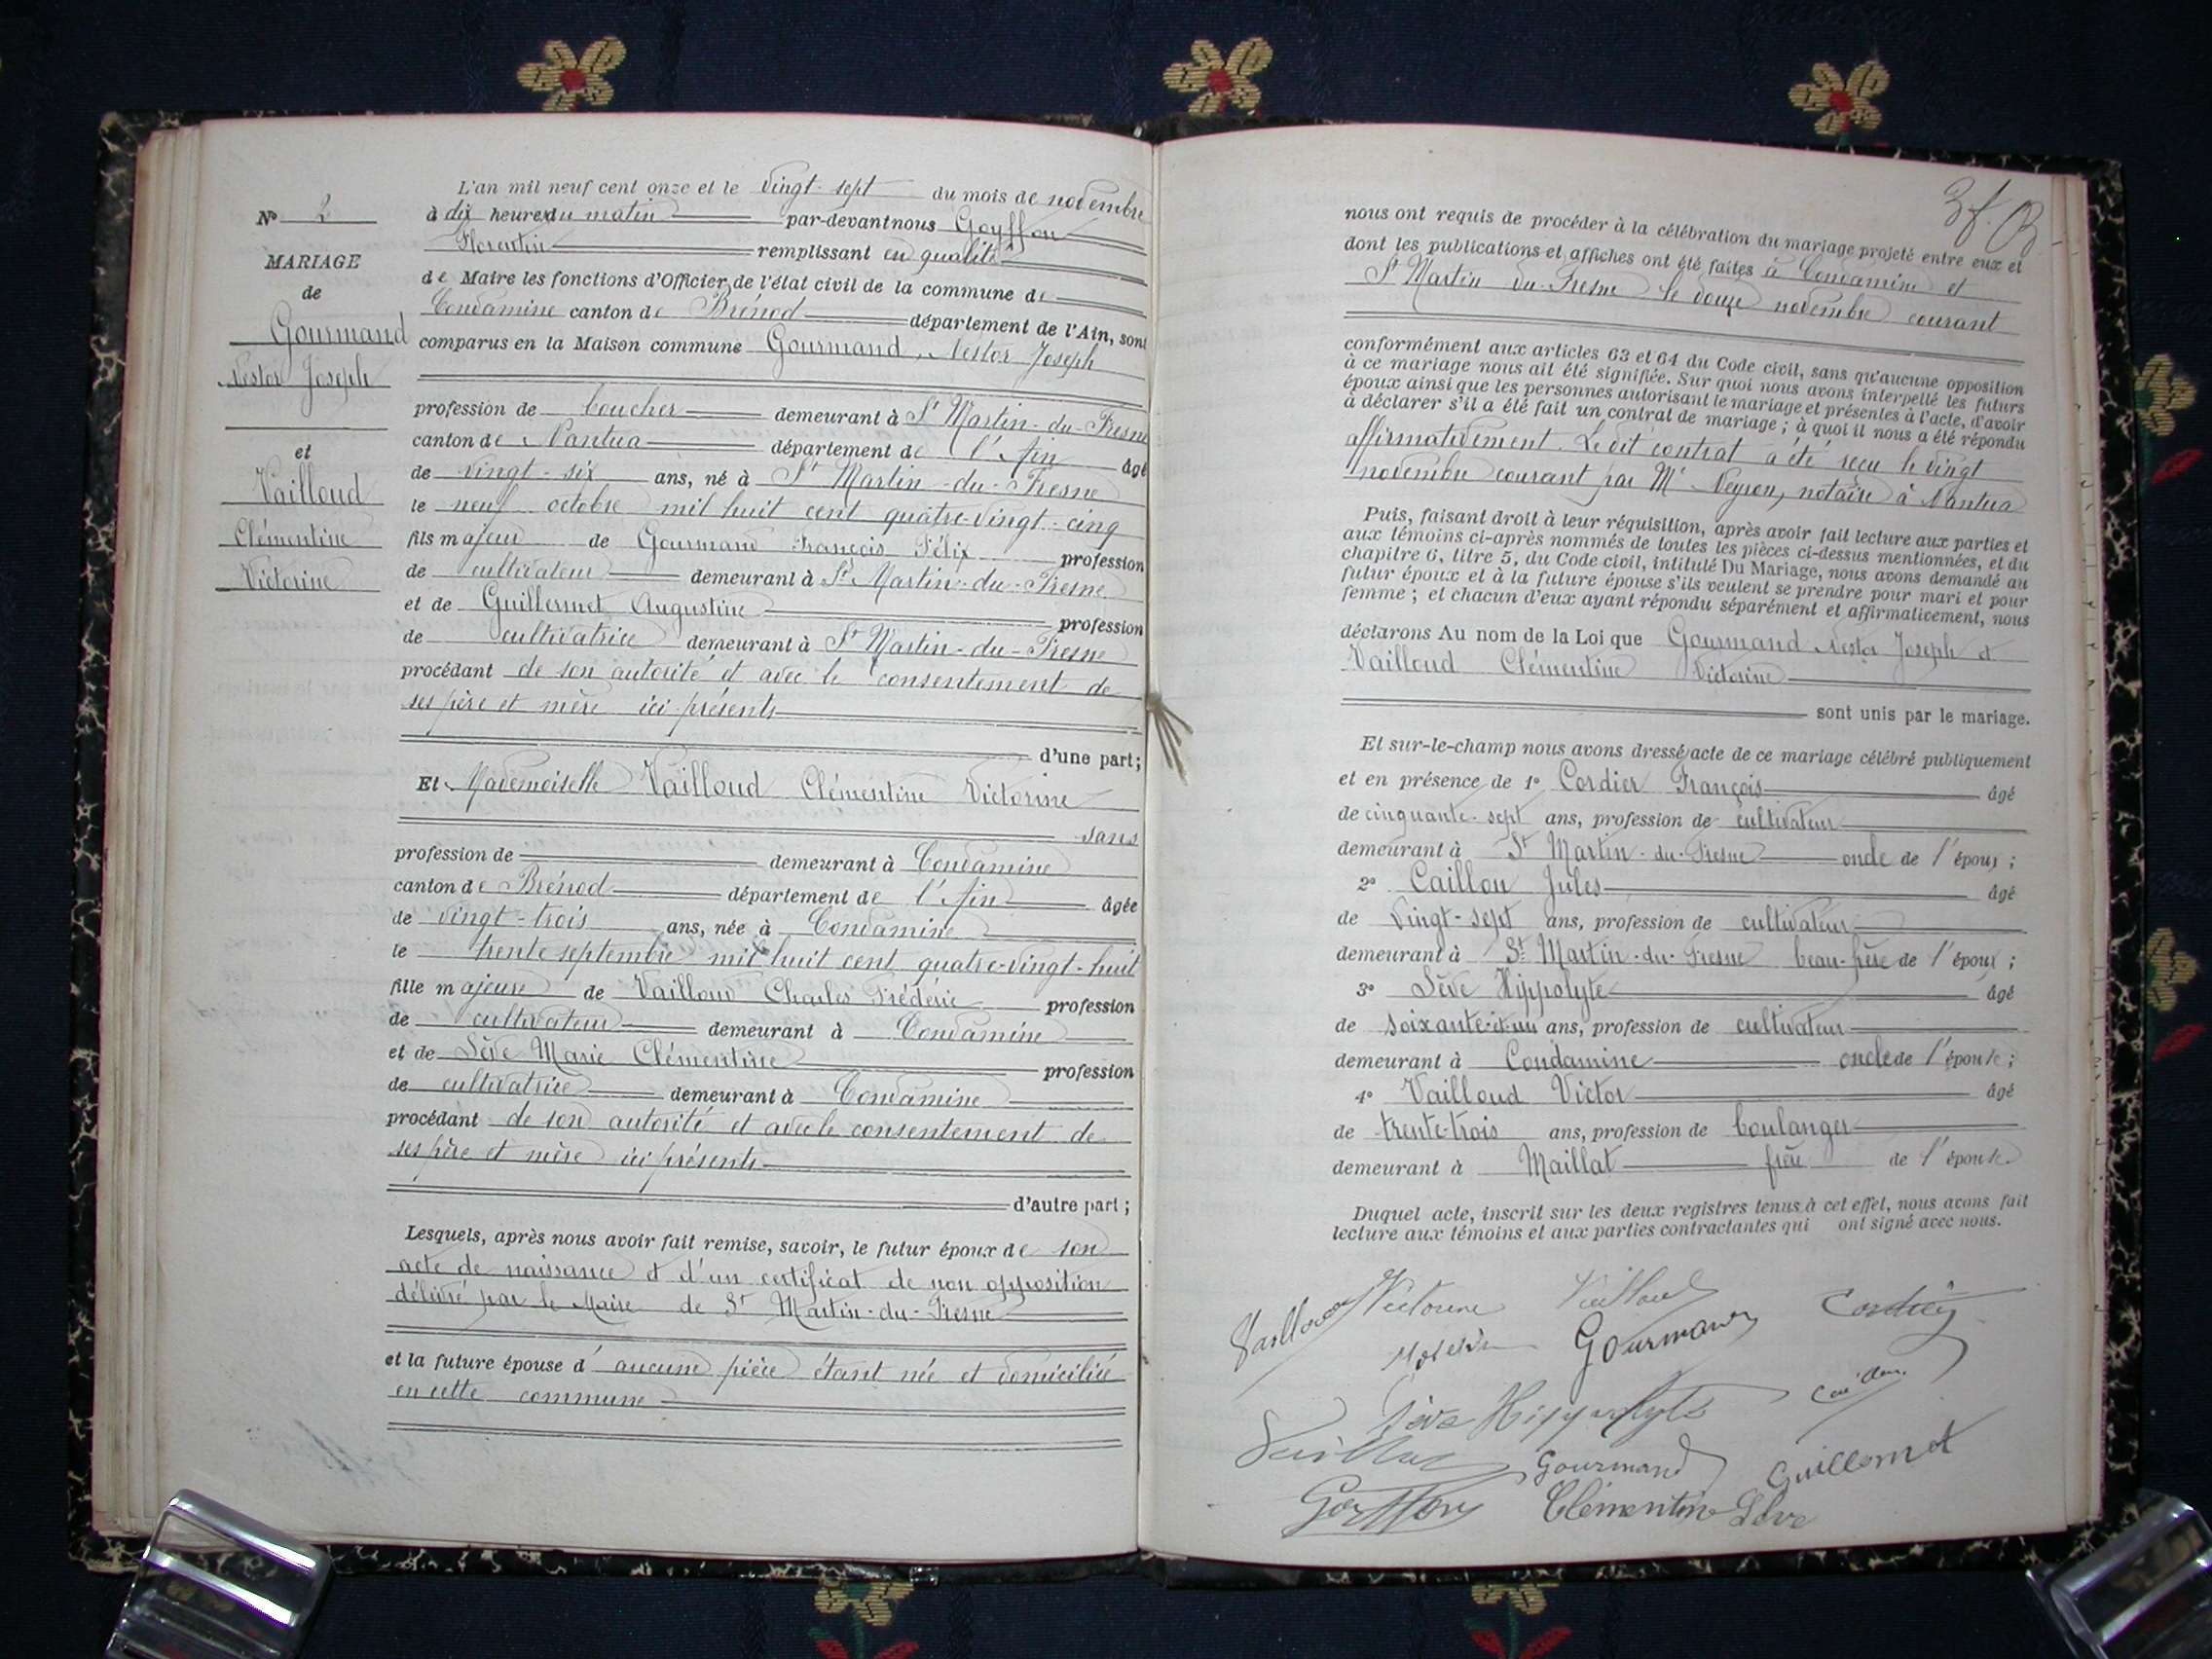 N° 2
MARIAGE
de
Gourmand
Nestor Joseph
et
Vailloud
Clémentine
Victorine
L'an mil neuf cent onze et le vingt-sept du mois de novembre
à dix heures du matin par-devant nous Goyffon
Florentin remplissant en qualité
de Maire les fonctions d'Officier de l'état civil de la commune de
Condamine canton de Brénod département de l'Ain, sont
comparus en la Maison commune Gourmand, Nestor Joseph
profession de boucher demeurant à St Martin-du-Fresne
canton de Nantua département de l'Ain âgé
de vingt-six ans, né à St Martin-du-Fresne
le neuf octobre mil huit cent quatre-vingt-cinq
fils majeur de Gourmand François Félix profession
de cultivateur demeurant à St Martin-du-Fresne
et de Guillermet Augustine profession
de cultivatrice demeurant à St Martin-du-Fresne
procédant de son autorité et avec le consentement de
ses père et mère ici présents
d'une part;
Et Mademoiselle Vailloud Clémentine Victorine
sans
profession de demeurant à Condamine
canton de Brénod département de l'Ain âgée
de vingt-trois ans, née à Condamine
le trente septembre mil huit cent quatre-vingt-huit
fille majeure de Vailloud Charles Frédéric profession
de cultivateur demeurant à Condamine
et de Sève Marie Clémentine profession
de cultivatrice demeurant à Condamine
procédant de son autorité et avec le consentement de
ses père et mère ici présents
d'autre part;
Lesquels, après nous avoir fait remise, savoir, le futur époux de son
acte de naissance et d'un certificat de non opposition
délivré par le Maire de St Martin-du-Fresne
et la future épouse d'aucune pièce étant née et domiciliée
en cette commune
nous ont requis de procéder à la célébration du mariage projeté entre eux et
dont les publications et affiches ont été faites à Condamine et
St Martin du-Fresne le douze novembre courant
conformément aux articles 63 et 64 du Code civil, sans qu'aucune opposition
à ce mariage nous ait été signifiée. Sur quoi nous avons interpellé les futurs
époux ainsi que les personnes autorisant le mariage et présentes à l'acte, d'avoir
à déclarer s'il a été fait un contrat de mariage; à quoi il nous a été répondu
affirmativement. Le dit contrat a été reçu le vingt
novembre courant par Me Neyron, notaire à Nantua
Puis, faisant droit à leur réquisition, après avoir fait lecture aux parties et
aux témoins ci-après nommés de toutes les pièces ci-dessus mentionnées, et du
chapitre 6, titre 5, du Code civil, intitulé Du Mariage, nous avons demandé au
futur époux et à la future épouse s'ils veulent se prendre pour mari et pour
femme; et chacun d'eux ayant répondu séparément et affirmativement, nous
déclarons Au nom de la Loi que Gourmand Nestor Joseph et
Vailloud Clémentine Victorine
sont unis par le mariage.
Et sur-le-champ nous avons dressé acte de ce mariage célébré publiquement
et en présence de 1° Cordier François âgé
de cinquante-sept ans, profession de cultivateur
demeurant à St Martin-du-Fresne oncle de l'époux;
2° Caillon Jules âgé
de vingt-sept ans, profession de cultivateur
demeurant à St Martin-du-Fresne beau-frère de l'époux;
3° Sève Hippolyte âgé
de soixante-et-un ans, profession de cultivateur
demeurant à Condamine oncle de l'épouse;
4° Vailloud Victor âgé
de trente-trois ans, profession de boulanger
demeurant à Maillat frère de l'épouse
Duquel acte, inscrit sur les deux registres tenus à cet effet, nous avons fait
lecture aux témoins et aux parties contractantes qui ont signé avec nous.
Vailloud Victorine Vailloud Cordier
Gourmand
Sève Hippolyte
Vailloud Gourmand Guillermet
Goyffon Clémentine Sève